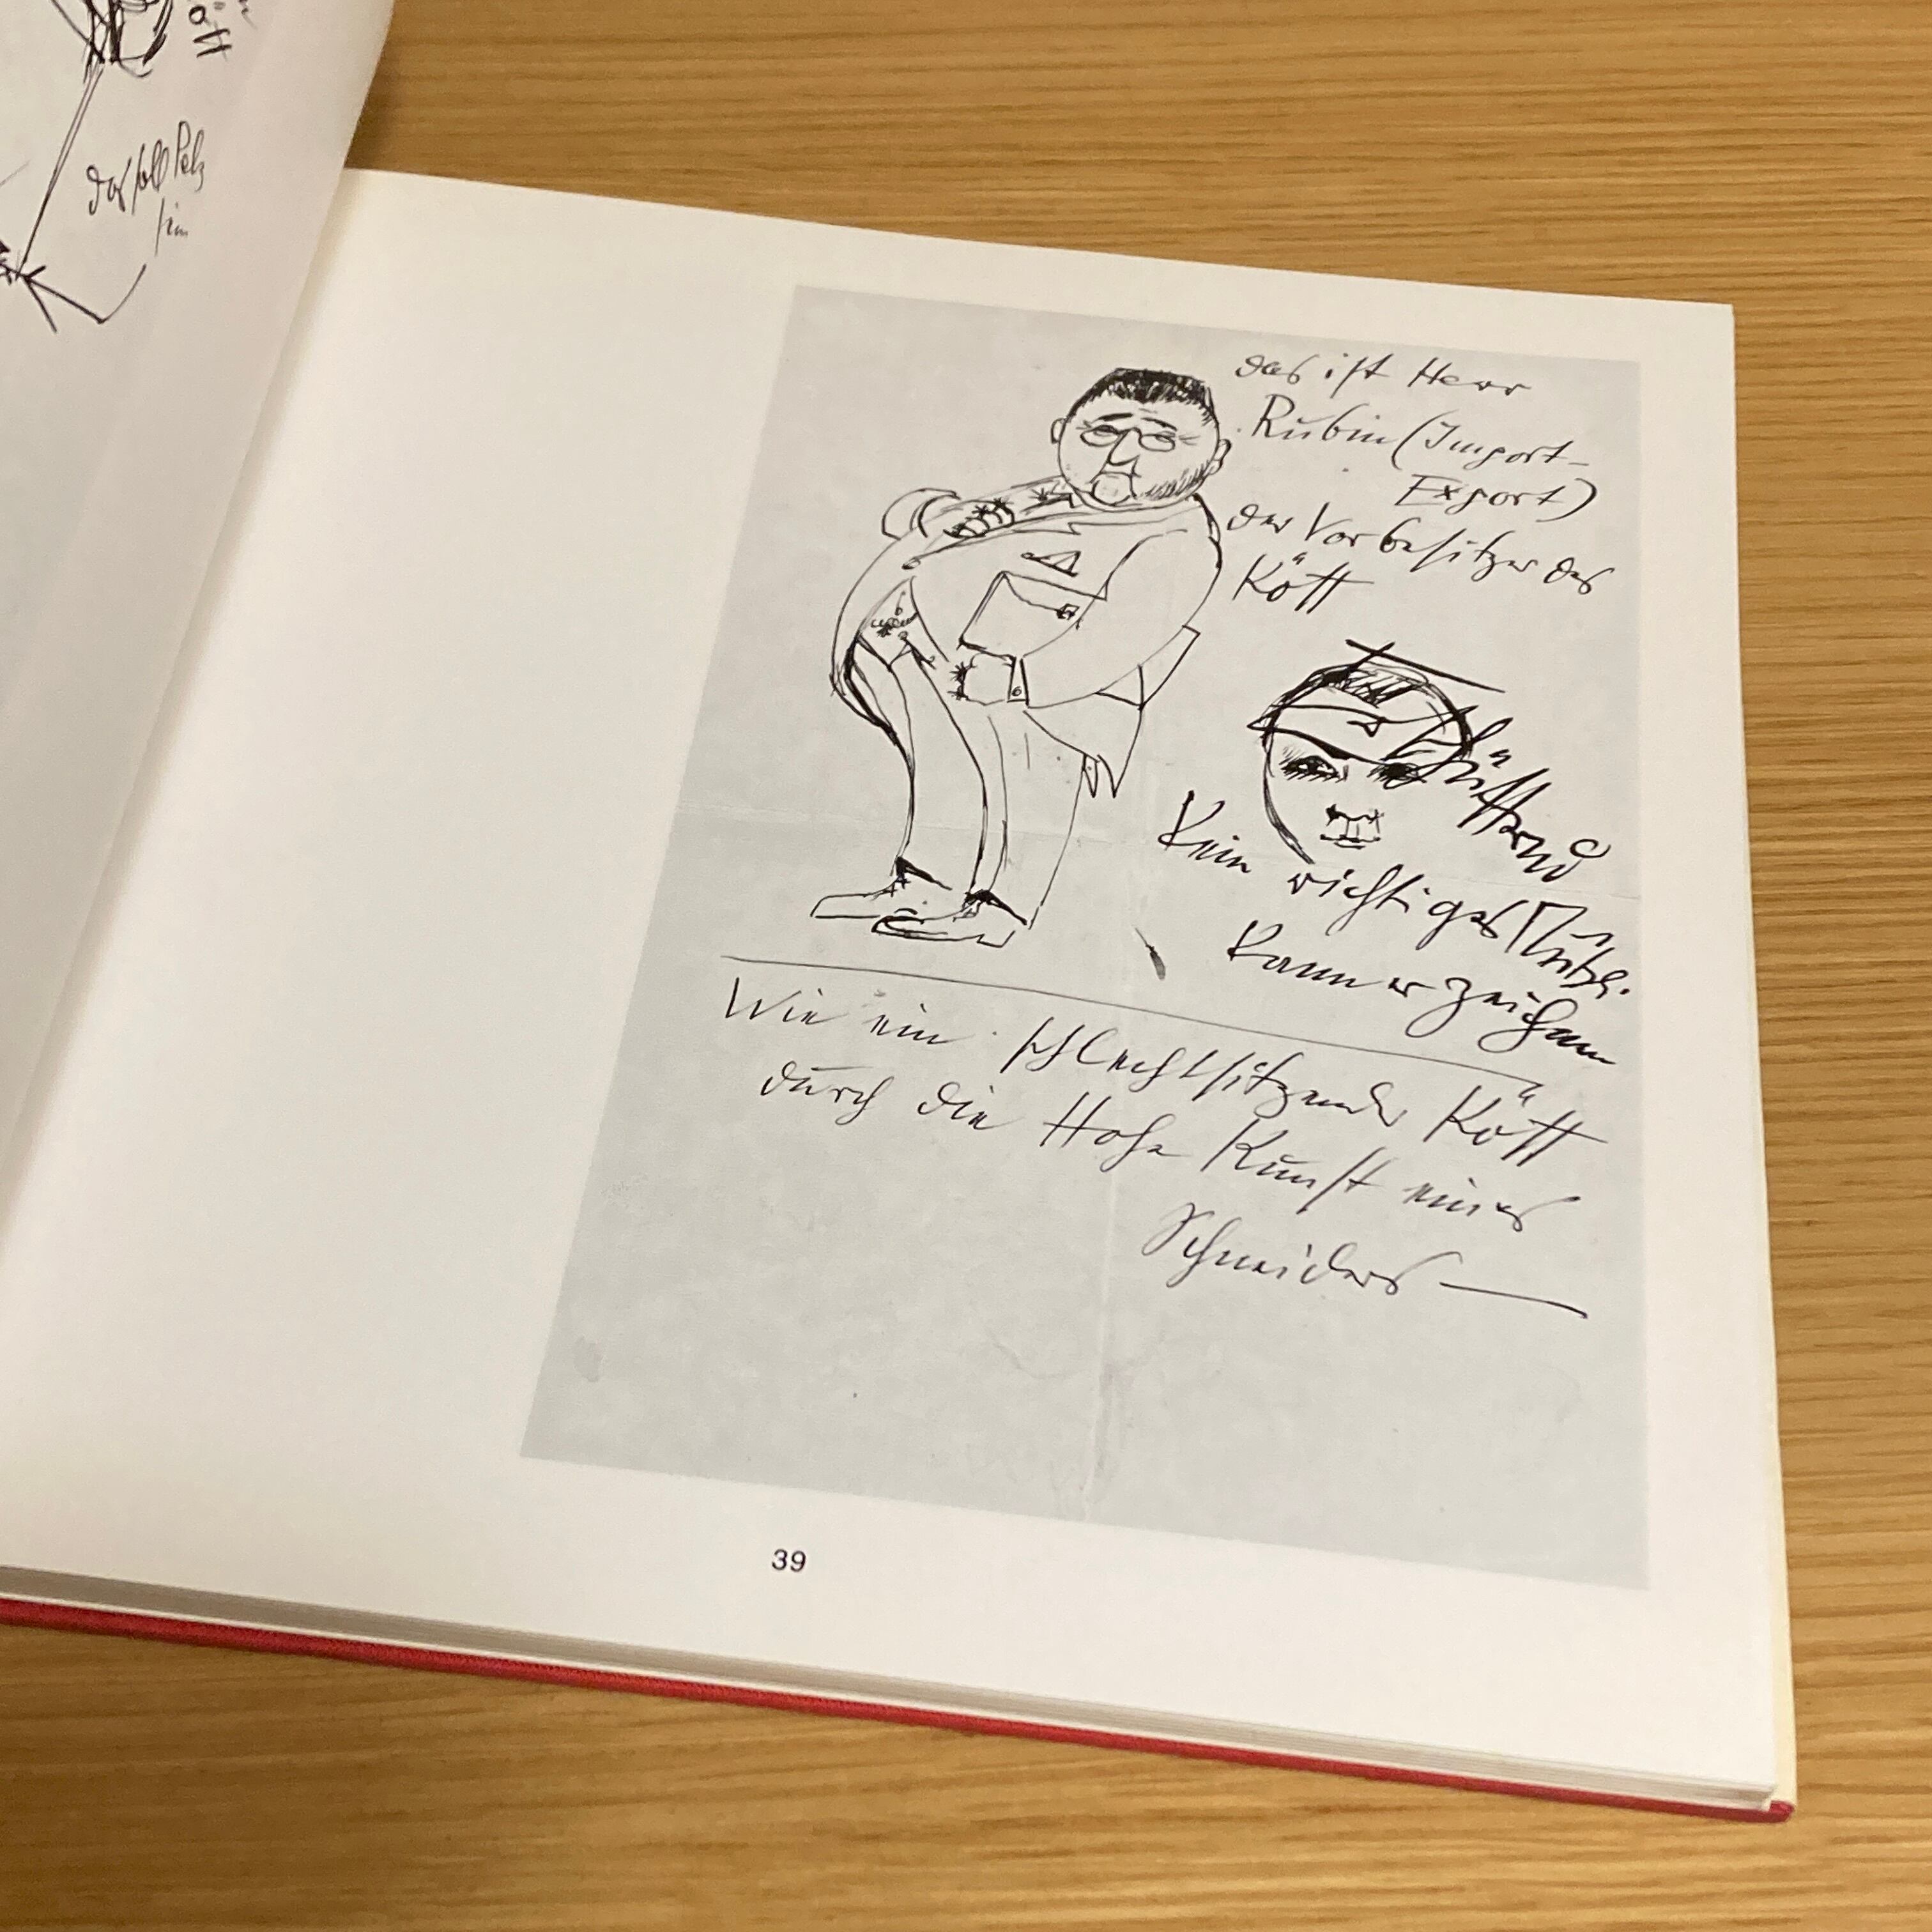 das soll Pelz
sein
das ist Herr
Rubin (Import-
Export)
der Vorbesitzer des
Kött
Kein richtiges
kann er zeichnen
Wie ein schlechtsitzender Kött
durch die Hohe Kunst eines
Schneiders —
39